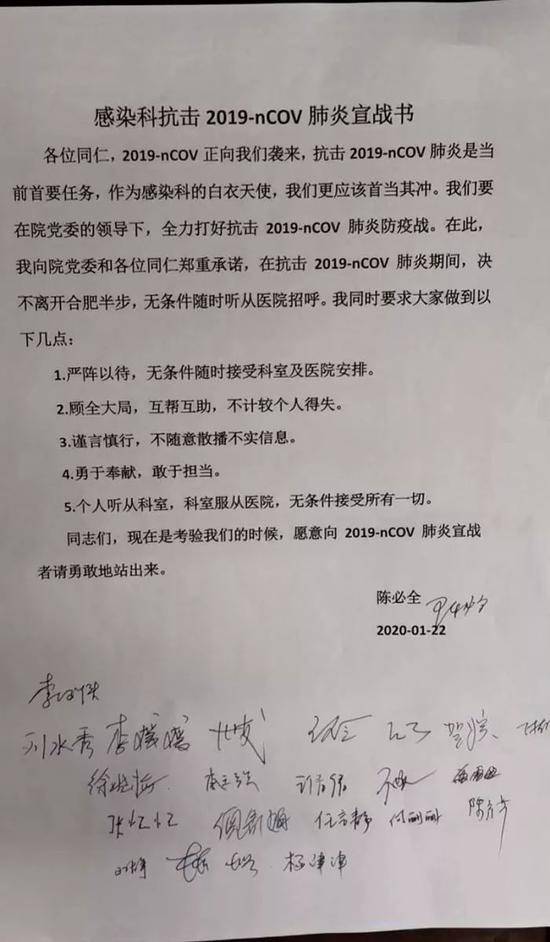 感染科抗击 2019-nCOV 肺炎宣战书
各位同仁，2019-nCOV 正向我们袭来，抗击 2019-nCOV 肺炎是当
前首要任务，作为感染科的白衣天使，我们更应该首当其冲。我们要
在院党委的领导下，全力打好抗击 2019-nCOV 肺炎防疫战。在此，
我向院党委和各位同仁郑重承诺，在抗击 2019-nCOV 肺炎期间，决
不离开合肥半步，无条件随时听从医院招呼。我同时要求大家做到以
下几点：
1.严阵以待，无条件随时接受科室及医院安排。
2.顾全大局，互帮互助，不计较个人得失。
3.谨言慎行，不随意散播不实信息。
4.勇于奉献，敢于担当。
5.个人听从科室，科室服从医院，无条件接受所有一切。
同志们，现在是考验我们的时候，愿意向 2019-nCOV 肺炎宣战
者请勇敢地站出来。
陈必全
2020-01-22
刘水秀 李媛媛
任方静 何丽丽
杨津津